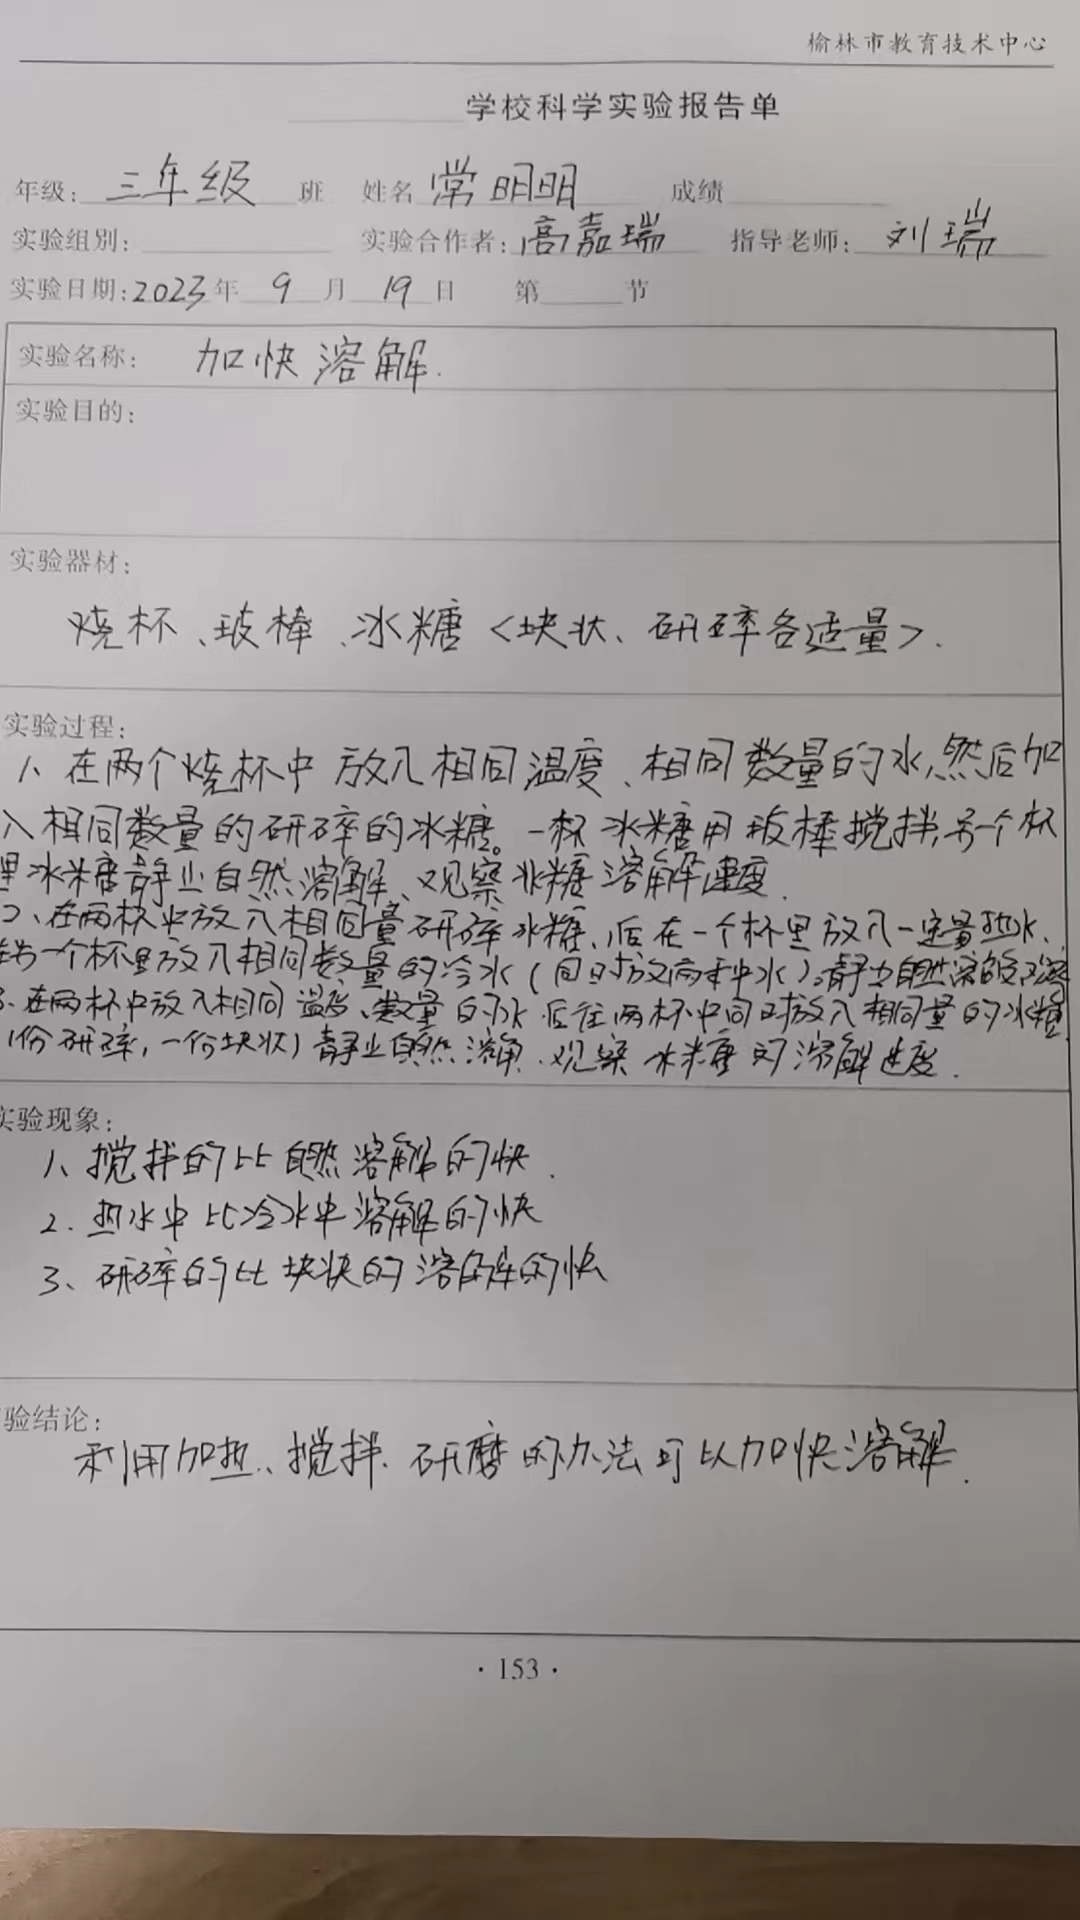 榆林市教育技术中心
学校科学实验报告单
年级: 三年级 班 姓名 常明明 成绩
实验组别: 实验合作者: 高嘉瑞 指导老师: 刘瑞
实验日期: 2023年 9 月 19 日 第 节
实验名称: 加快溶解.
实验目的:
实验器材:
烧杯、玻棒、冰糖<块状、研碎各适量>.
实验过程:
1、在两个烧杯中放入相同温度、相同数量的水,然后加
入相同数量的研碎的冰糖。一杯冰糖用玻棒搅拌,另一个杯
里冰糖静止自然溶解、观察冰糖溶解速度.
2、在两杯中放入相同量研碎冰糖、后在一个杯里放入一定量热水、
在另一个杯里放入相同数量的冷水(同时放两种水)静止自然溶解
3.在两杯中放入相同温度、数量的水.后往两杯中同时放入相同量的冰糖
(份研碎,一份块状)静止自然溶解.观察冰糖的溶解速度.
实验现象:
1、搅拌的比自然溶解的快.
2.热水中比冷水中溶解的快
3、研碎的比块状的溶解的快
验结论:
利用加热、搅拌、研磨的办法可以加快溶解.
·153·